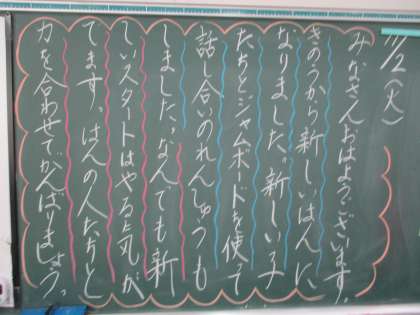 11/2(火)
みなさんおはようございます。
きのうから新しいはんに
なりました。新しい子
たちとジャムボードを使って
話し合いのれんしゅうも
しました。なんでも新
しいスタートはやる気が
でます。はんの人たちと
力を合わせてがんばりましょう。